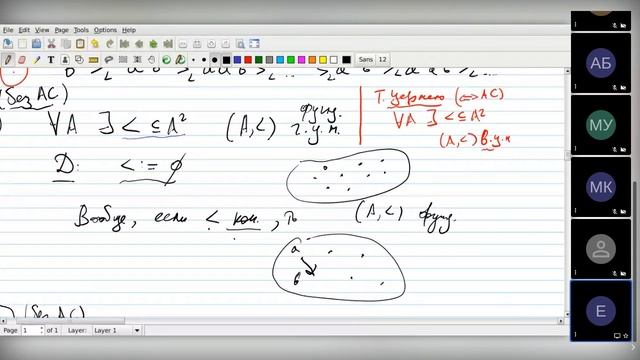 File Edit View Page Tools Options Help
Sans 12
(без AC)
∀A ∃ < ⊆ A² (A,<) фунд. ч.у.м.
Т. Цермело (⇔ AC)
∀A ∃ < ⊆ A²
(A,<) в.у.м
D: < := ∅
Вообще, если < кон., то (A,<) фунд.
a
b
(без AC)
Page 1 of 1 Layer: Layer 1
АБ
МУ
МК
Е